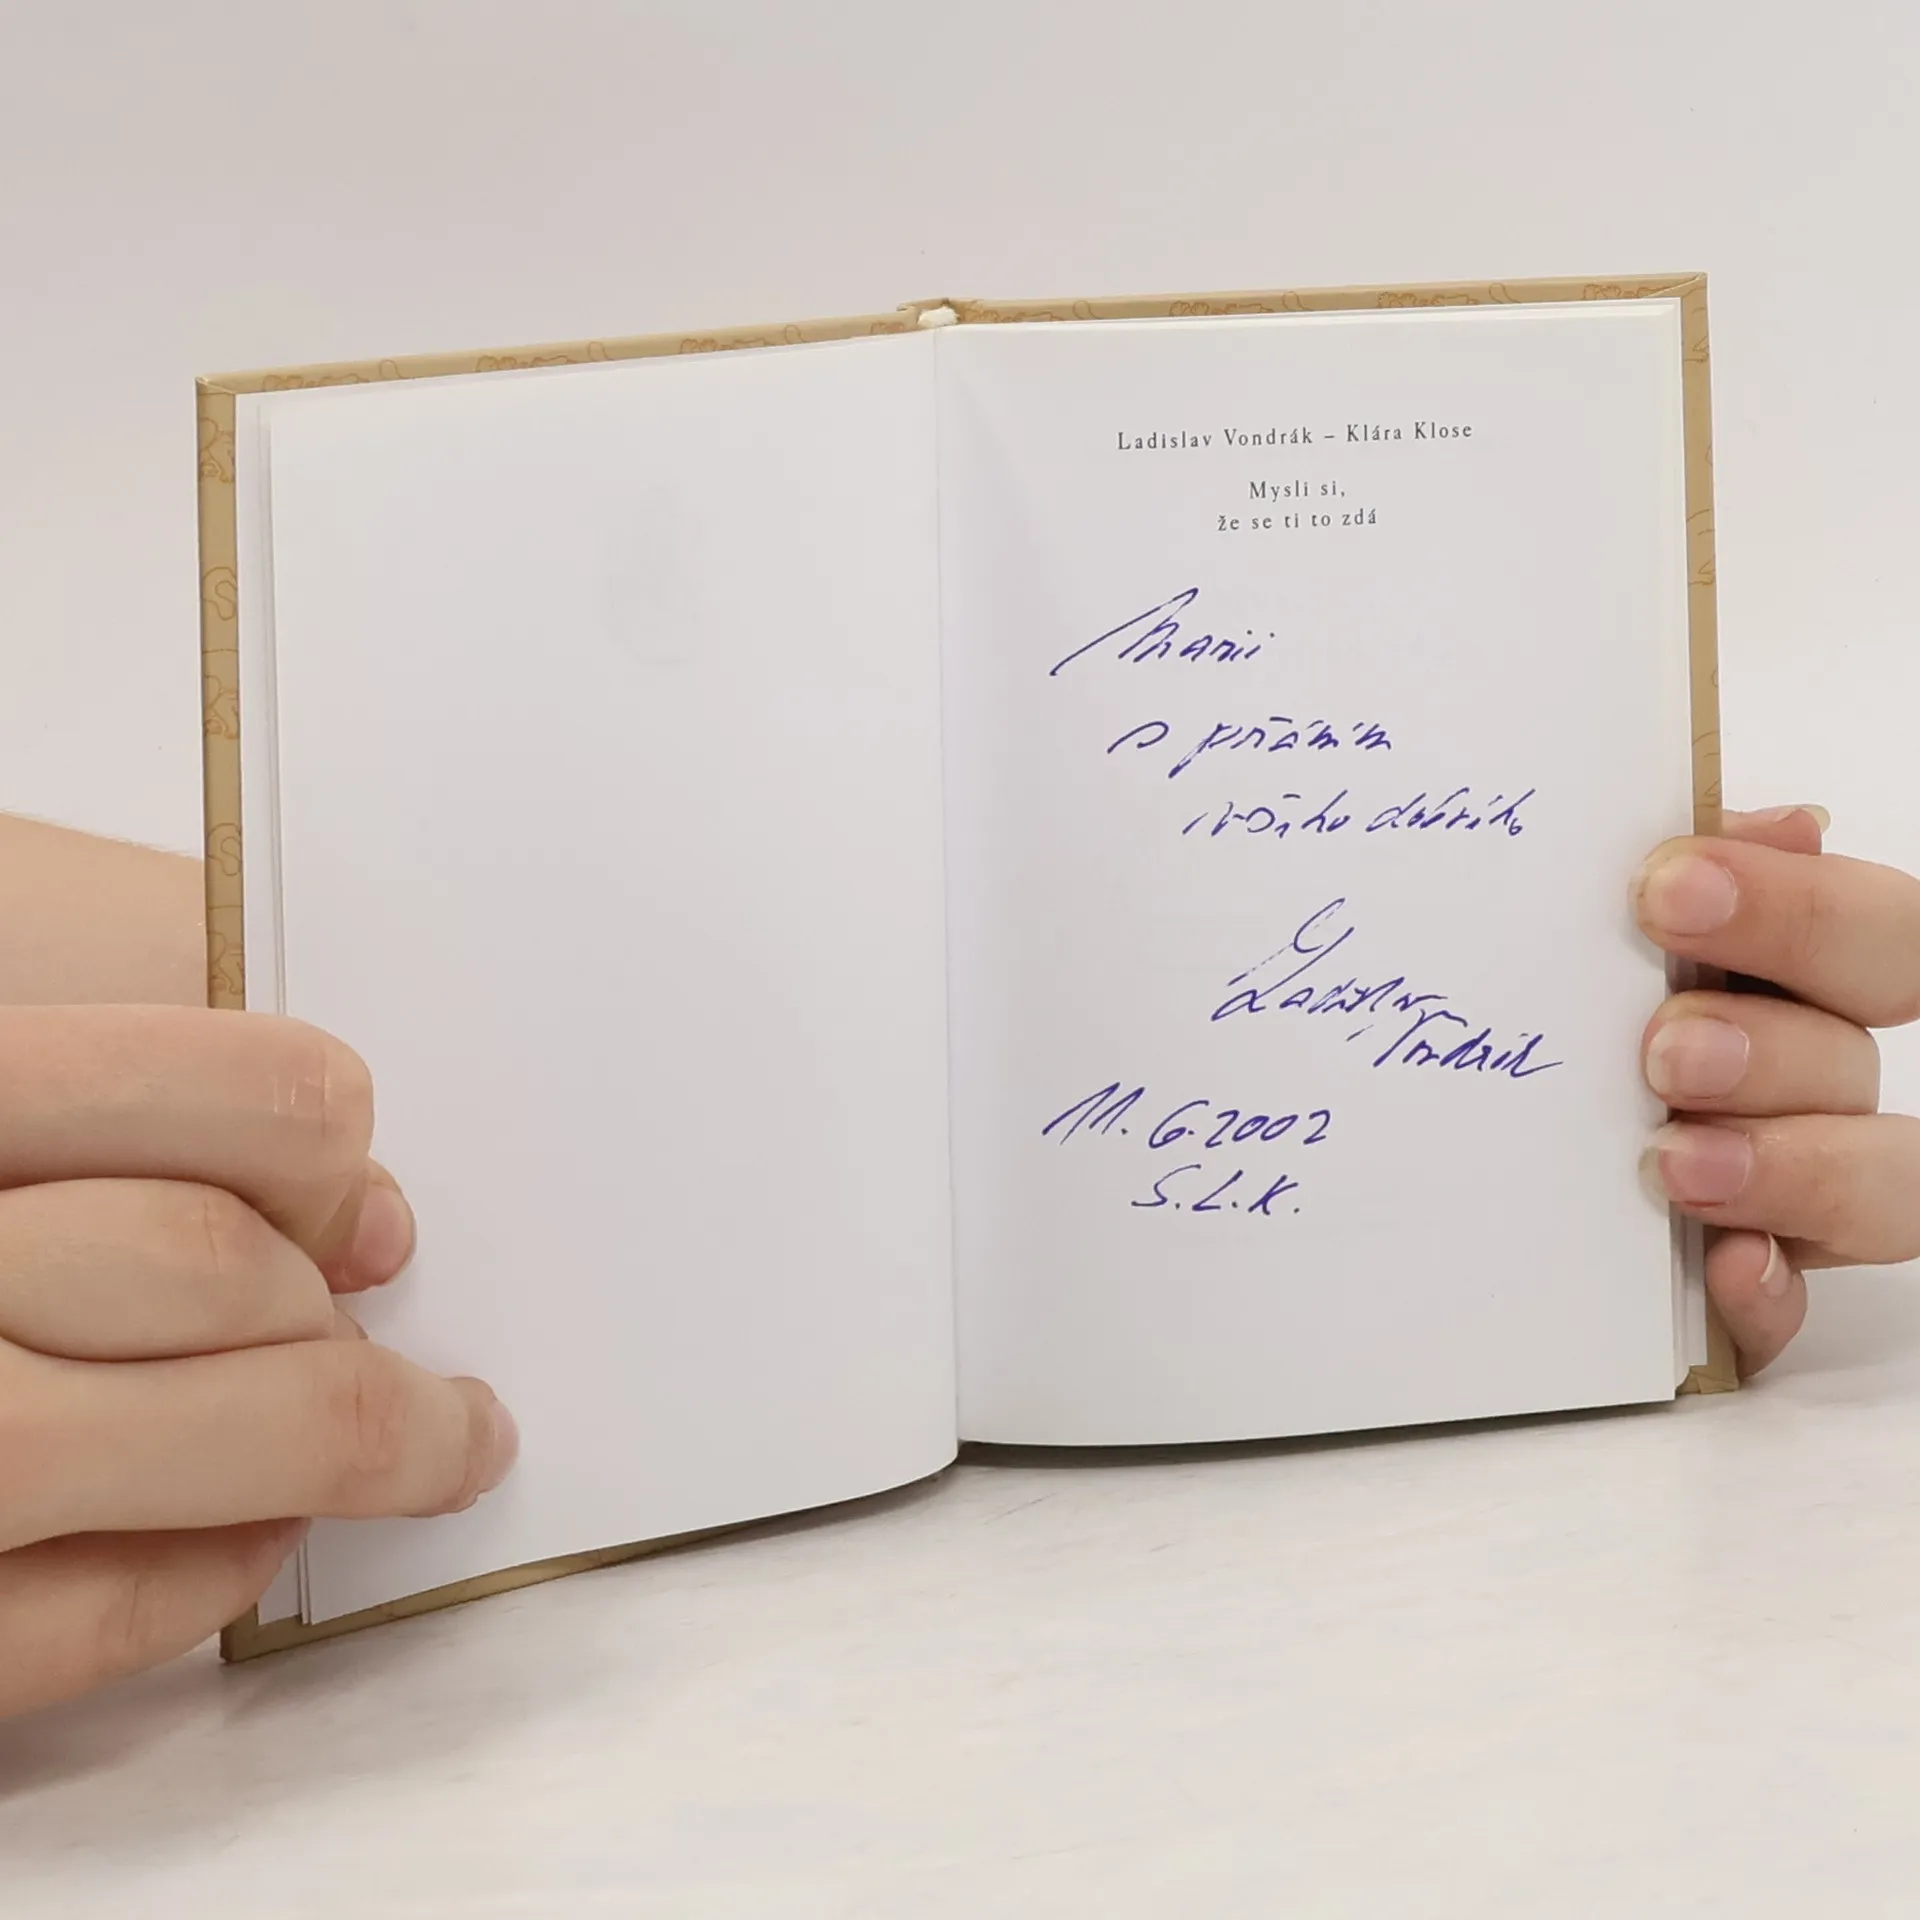 Ladislav Vondrák – Klára Klose
Mysli si,
že se ti to zdá
Marii
s přáním
všeho dobrého
Ladislav
Vondrák
11. 6. 2002
S.L.K.